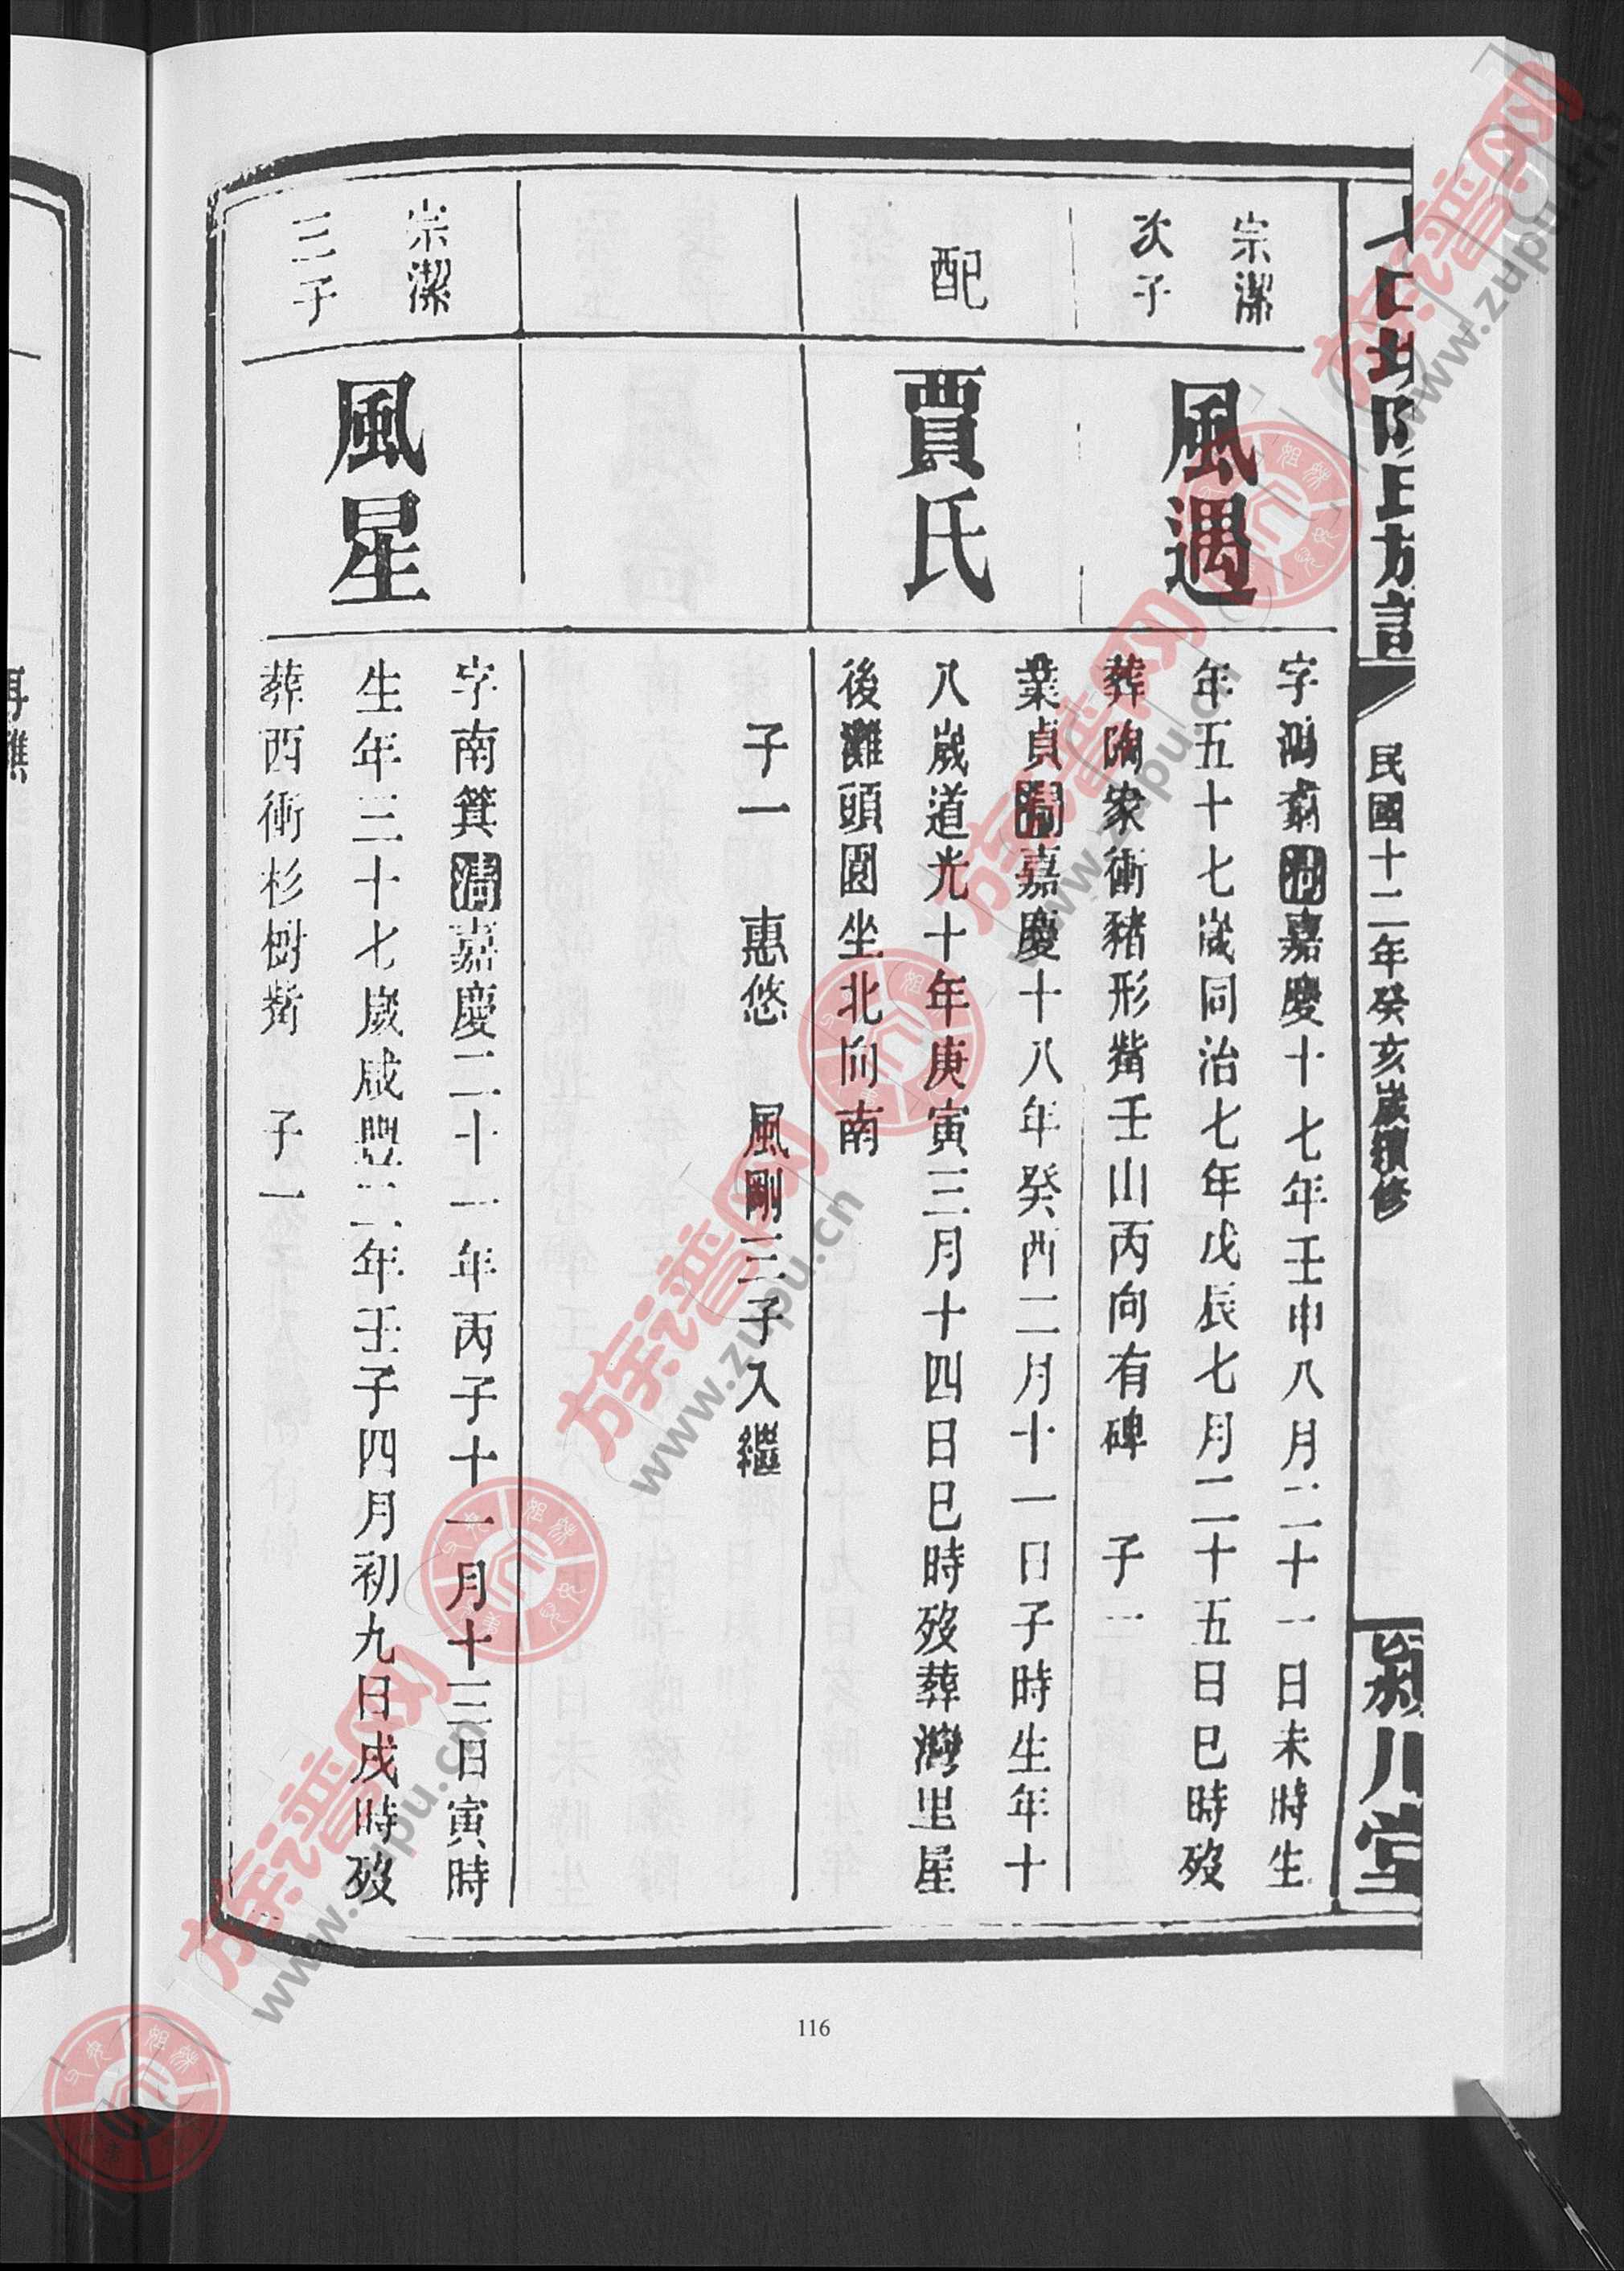 民國十二年癸亥歲續修
潁川堂
宗潔
次子
風遇
字鴻翥清嘉慶十七年壬申八月二十一日未時生
年五十七歲同治七年戊辰七月二十五日巳時歿
葬陶家衝豬形觜壬山丙向有碑 子一
配
賈氏
業貞清嘉慶十八年癸酉二月十一日子時生年十
八歲道光十年庚寅三月十四日巳時歿葬灣里屋
後灘頭圓坐北向南
子一 惠悠 風剛三子入繼
宗潔
三子
風星
字南箕清嘉慶二十一年丙子十一月十三日寅時
生年三十七歲咸豐二年壬子四月初九日戌時歿
葬西衝杉樹觜 子一
116
族譜网
www.zupu.cn
族譜网
www.zupu.cn
族譜网
www.zupu.cn
族譜网
www.zupu.cn